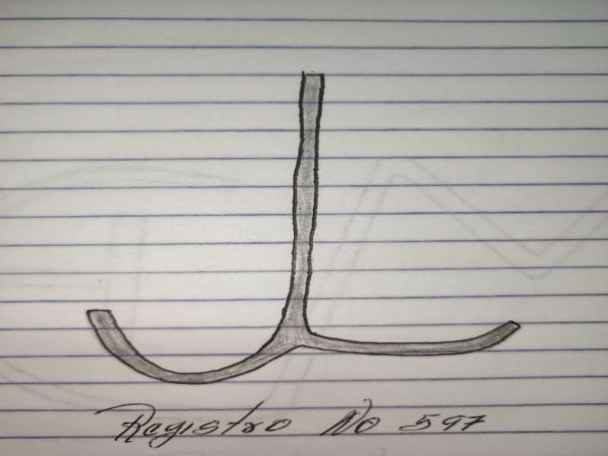 Registro No 597